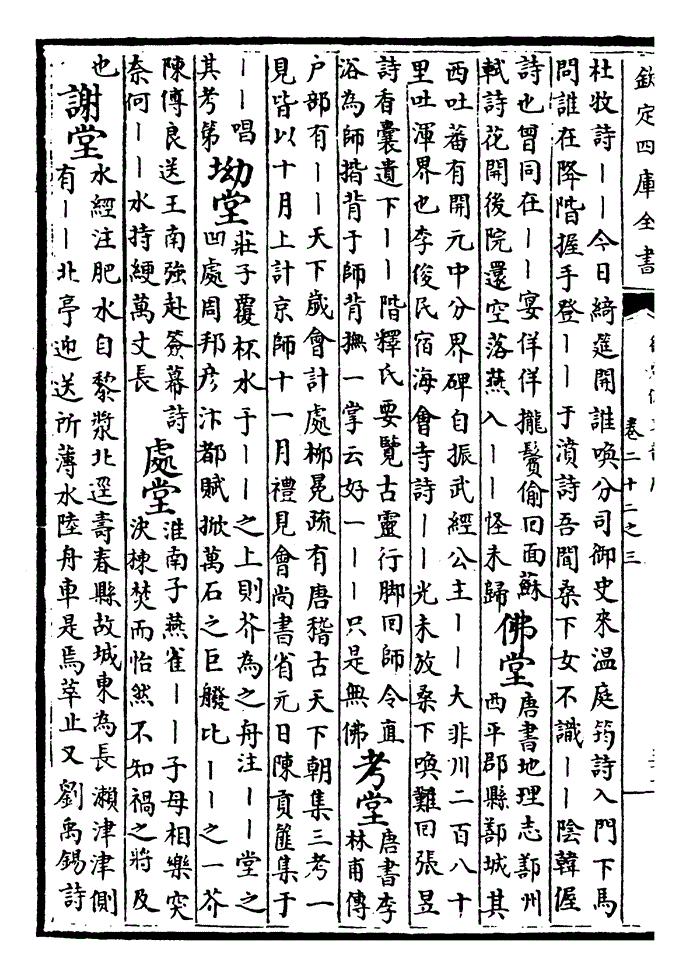 欽定四庫全書
卷二十二之三
杜牧詩――今日綺筵開誰喚分司御史來温庭筠詩入門下馬
問誰在降階握手登――于濆詩吾聞桑下女不識――陰韓偓
詩也曾同在――宴佯佯攏鬢偷回面蘇
軾詩花開後院還空落燕入――怪未歸
佛堂
唐書地理志鄯州
西平郡縣鄯城其
西吐蕃有開元中分界碑自振武經公主――大非川二百八十
里吐渾界也李俊民宿海會寺詩――光未放桑下喚難回張昱
詩香囊遺下――階釋氏要覽古靈行脚回師令直
浴為師揩背于師背撫一掌云好一――只是無佛
考堂
唐書李
林甫傳
户部有――天下歲會計處柳冕疏有唐稽古天下朝集三考一
見皆以十月上計京師十一月禮見會尚書省元日陳貢篚集于
――唱
其考第
坳堂
莊子覆杯水于――之上則芥為之舟注――堂之
凹處周邦彦汴都賦掀萬石之巨艘比――之一芥
陳傅良送王南強赴簽幕詩
奈何――水持綆萬丈長
處堂
淮南子燕雀――子母相樂突
決棟焚而怡然不知禍之將及
也
謝堂
水經注肥水自黎漿北逕壽春縣故城東為長瀨津津側
有――北亭迎送所薄水陸舟車是焉萃止又劉禹錫詩